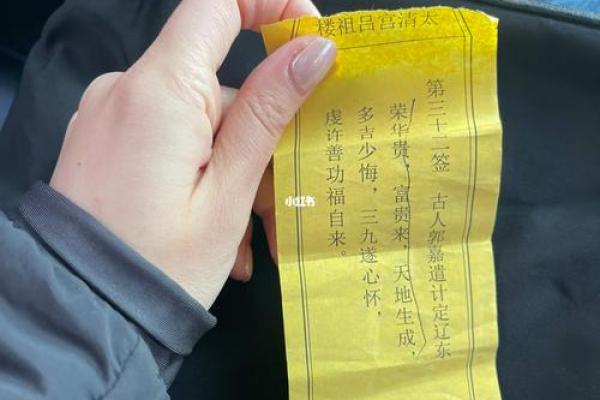 太清宫吕祖楼
第三十二签 古人郭嘉遣计定辽东
荣华贵，富贵来，天地生成，
多吉少悔，三九遂心怀，
虔许善功福自来。
小红书